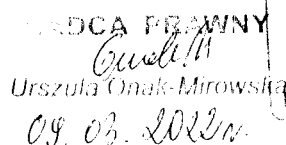 RADCA PRAWNY
Urszula Onak-Mirowska
09.03.2022r.